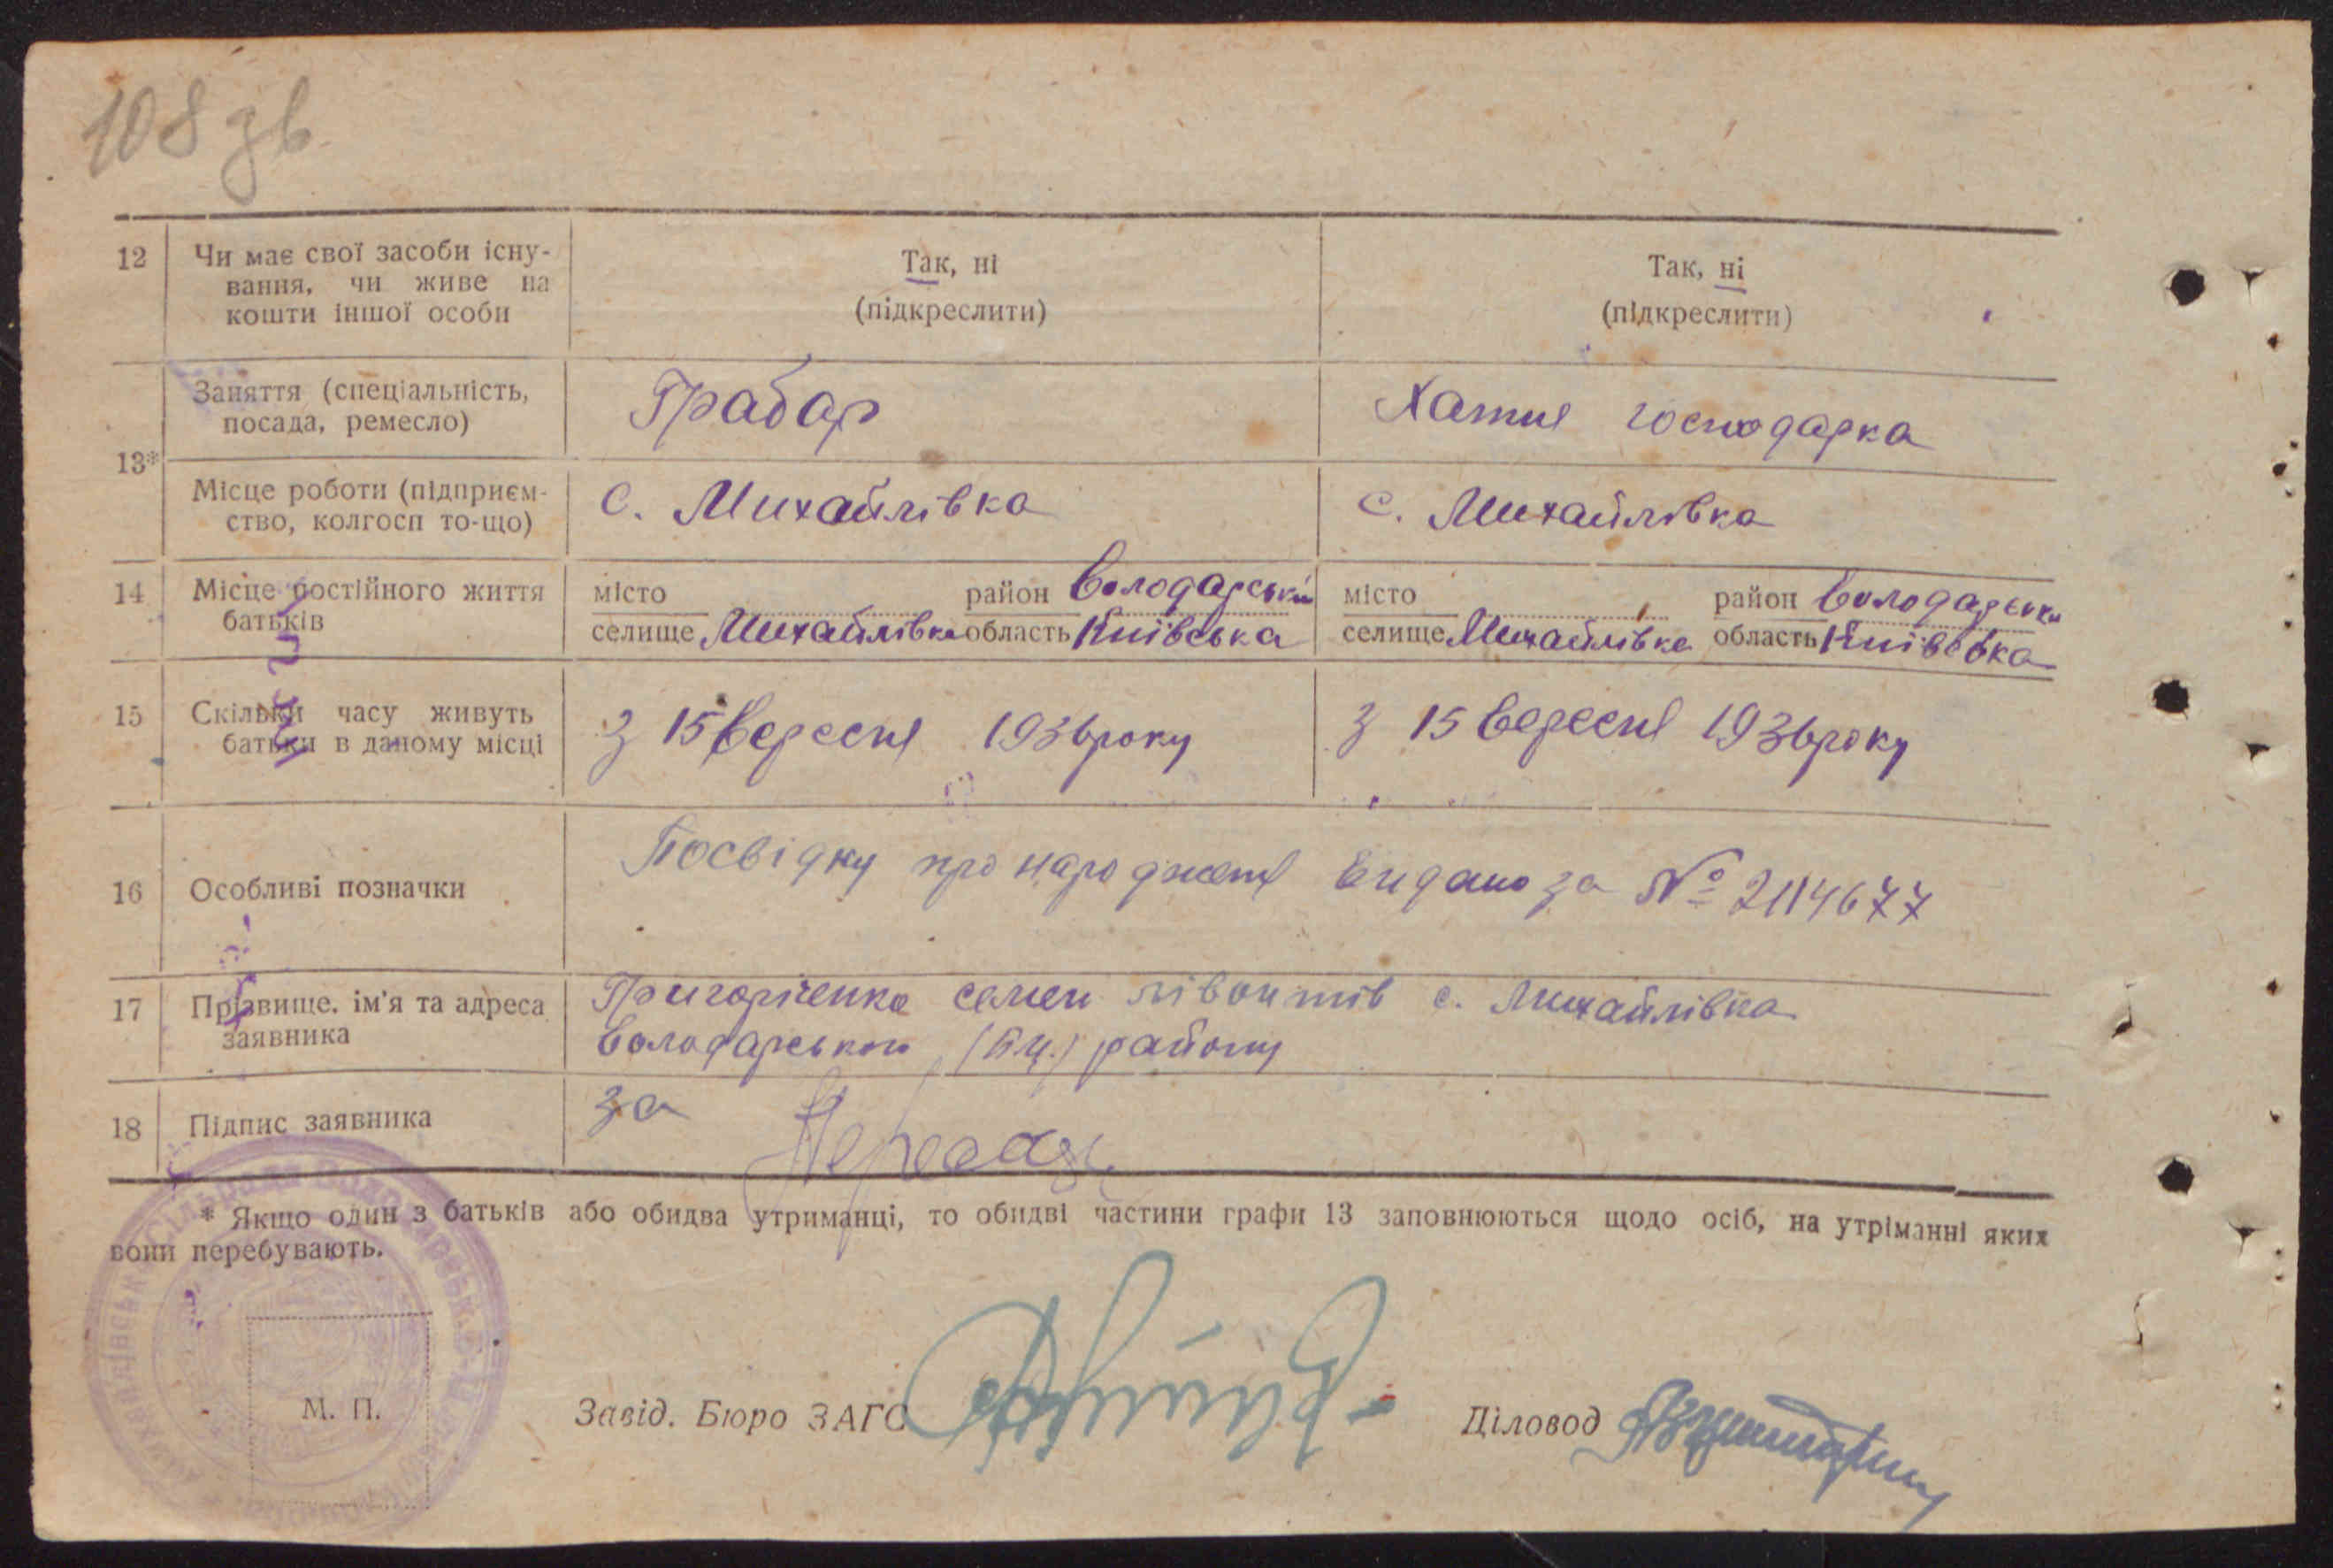 108 зв
12 Чи має свої засоби існу- Так, ні Так, ні
вання, чи живе на
кошти іншої особи (підкреслити) (підкреслити)
Заняття (спеціальність, Грабар Хатня господарка
посада, ремесло)
13*
Місце роботи (підприєм- с. Михайлівка с. Михайлівка
ство, колгосп то-що)
14 Місце постійного життя місто район Володарський місто район Володарський
батьків селище Михайлівка область Київська селище Михайлівка область Київська
15 Скільки часу живуть з 15 вересня 1936 року з 15 вересня 1936 року
батьки в даному місці
Посвідку про народження видано за № 2114677
16 Особливі позначки
17 Прізвище. ім'я та адреса Григоріченко семен с. Михайлівка
заявника Володарського району
18 Підпис заявника за
* Якщо один з батьків або обидва утриманці, то обидві частини графи 13 заповнюються щодо осіб, на утріманні яких
вони перебувають.
М. П. Завід. Бюро ЗАГС Діловод